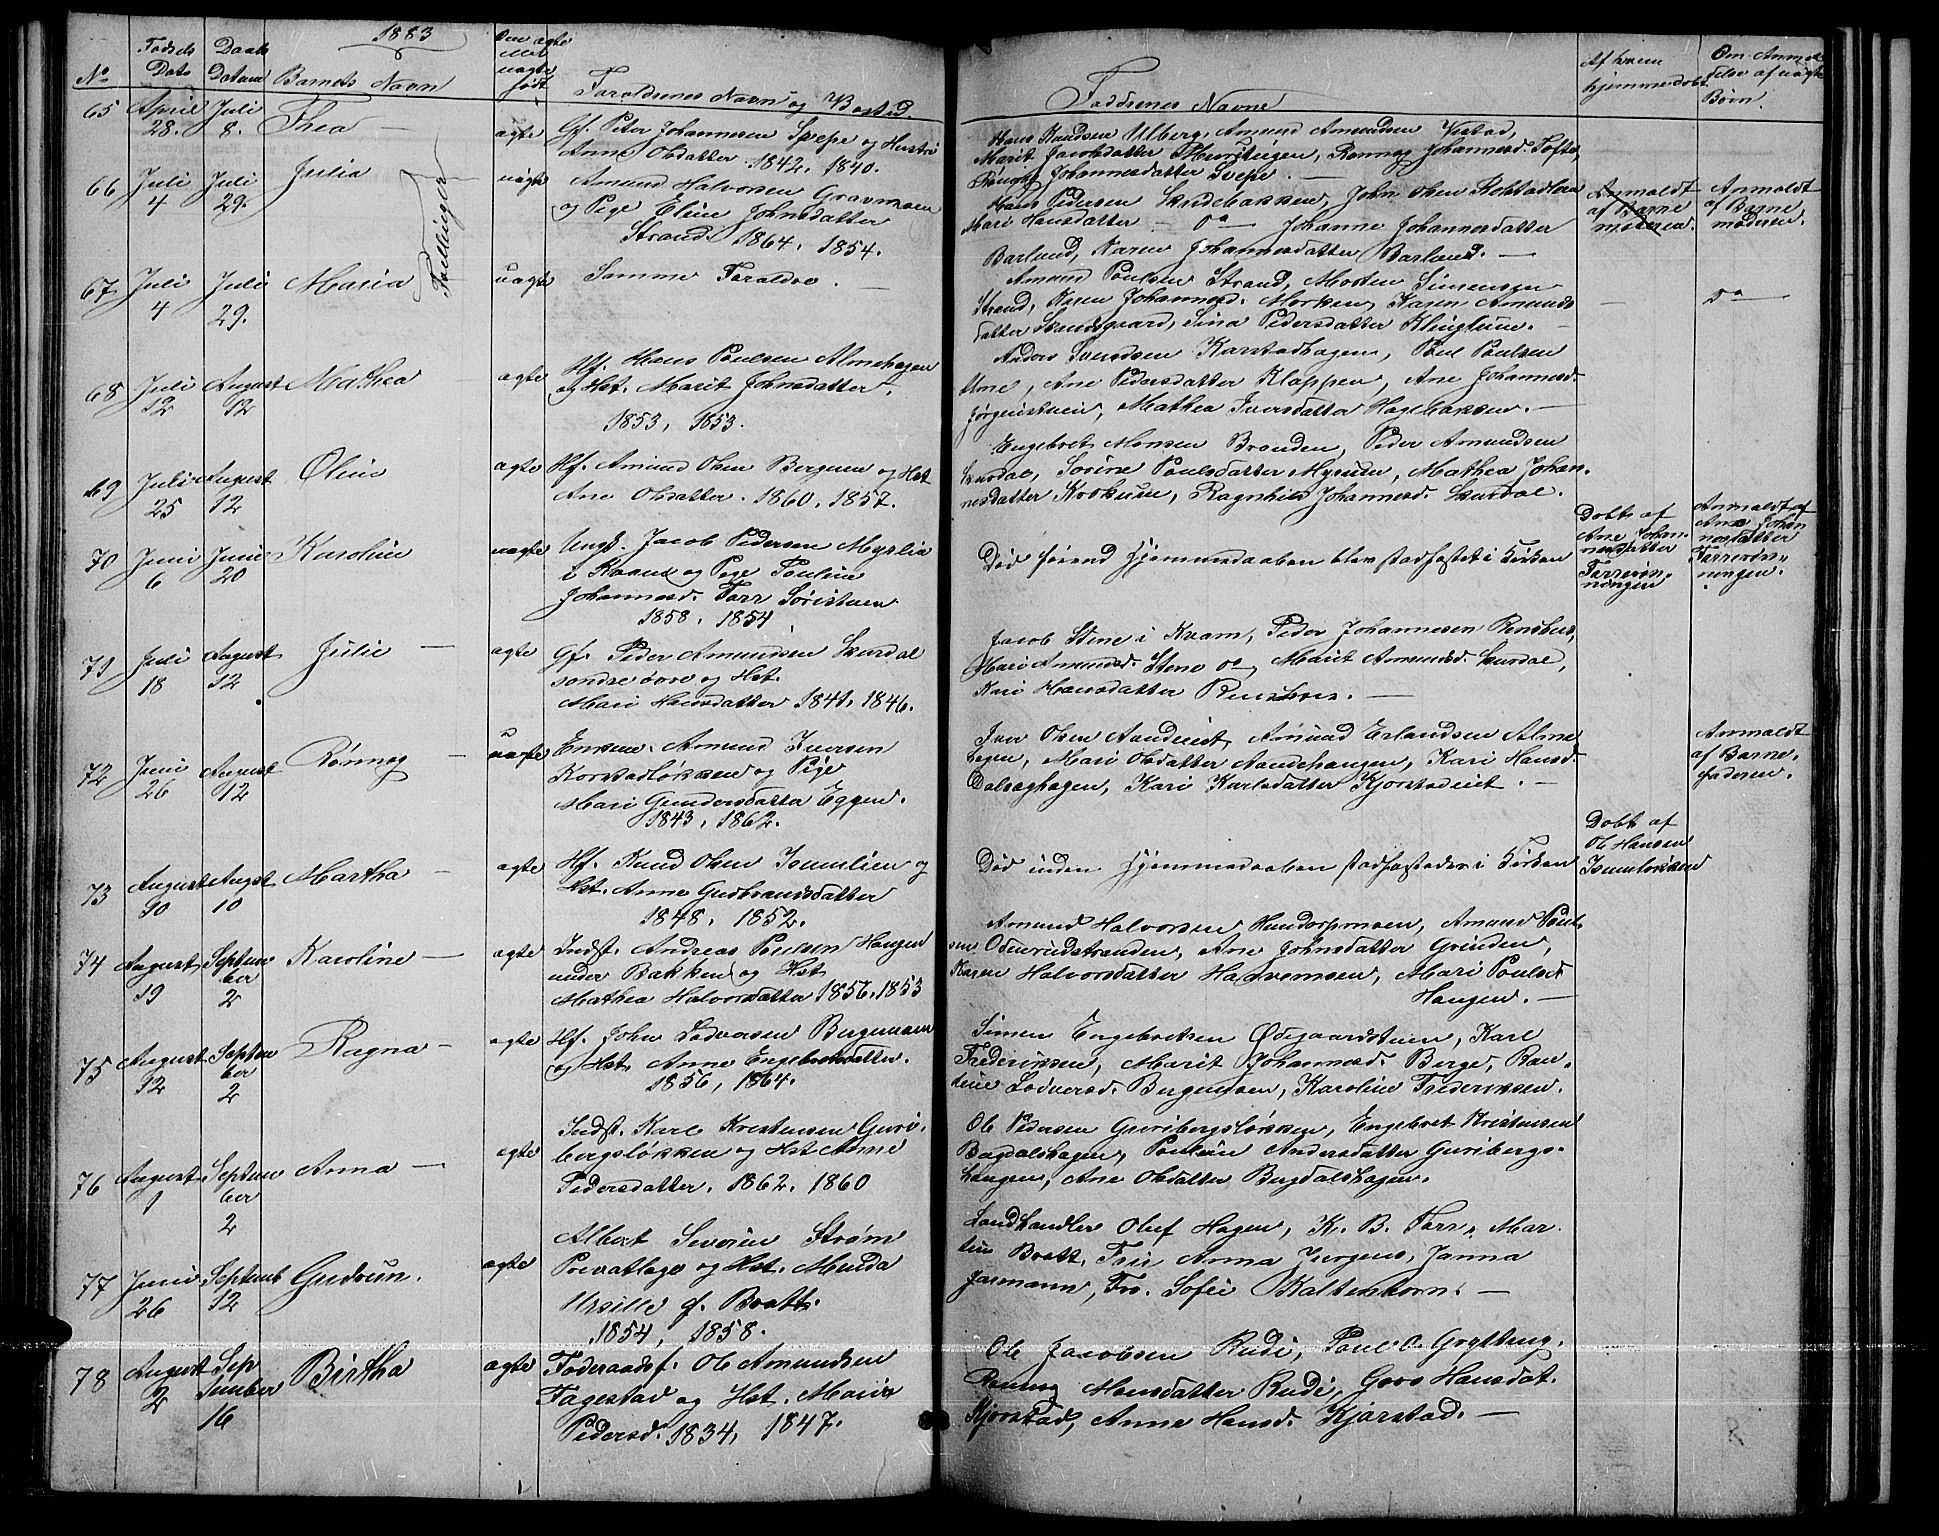 1883
No
Fødsels
Dato
Daabs
Datum
Barnets Navn
Om ægte
eller
uægte
født
Foraldrenes Navn og Bosted.
Faddrenes Navne
Af hvem
hjemmedobt
Om Anmel
delse af uægte
Børn.
65 April 28. Juli 8. Thea — ægte
Gf. Peter Johannesen Svepe og Hustru
Anne Olsdatter. 1842, 1840.
Hans Knudsen Ulberg, Amund Amundsen
Marit Jacobsdatter Ronnog Johannesd. Tofte,
Rønnog Johannesdatter Svepe. —
66 Juli 4 Juli 29. Julia uægte
Tvillinger
Amund Halvorsen Gravmoen
og Pige Eline Johnsdatter
Strand. 1864, 1854.
Hans Pedersen John Olsen
Mari Hansdatter — do — Johanne Johannesdatter
Barlund, Karen Johannesdatter Barlund. —
Anmeldt
af Barne
moderen.
Anmeldt
af Barne
moderen.
67 Juli 4 Juli 29. Maria uægte
Samme Foraldre. —
Amund Poulsen Strand, Morten Simensen
Strand, Karen Johannesd. Morken, Karen Amunds
datter Sina Pedersdatter
— do —
68 Juli 12 August 12 Mathea ægte
Hf. Hans Poulsen Almehagen
og Hst. Marit Johnsdatter.
1853, 1853.
Anders Svendsen Karstadhagen, Poul Poulsen
Ane Pedersdatter Klappen, Ane Johannesd.
Jørgenstuen, Mathea Iversdatter Hagebakken. —
69 Juli 25 August 12 Oline ægte
Hf. Amund Olsen Bergum og Hst
Ane Olsdatter. 1860, 1857.
Engebret Monsen Brenden, Peder Amundsen
Skurdal, Sorine Poulsdatter Mathea Johan-
nesdatter Ragnhild Johannesd. Skurdal.
70 Juni 6 Juni 20 Karoline uægte
Ungk. Jacob Pedersen Myrlia
i Kvam og Pige Pauline
Johannesd. Forr Søristuen
1858, 1854
Død førend Hjemmedaaben blev stadfæstet i Kirken
Dobt af
Ane Johan-
nesdatter
ningen
Anmeldt af
Ane Johan
nesdatter
ningen.
71 Juli 18 August 12 Julie — ægte
Gf. Peder Amundsen Skurdal
sondre øvre og Hst.
Mari Hansdatter 1841, 1846.
Jacob Stene i Kvam, Peder Johannesen Renshus,
Mari Amundsd. Stene og Marit Amundsd. Skurdal,
Kari Hansdatter Renshus. —
72 Juni 26 August 12 Rønnog — uægte
Enkem. Amund Iversen
Korstadløkken og Pige
Mari Gundersdatter Eggen.
1843, 1862.
Iver Olsen Amund Erlandsen Alme
hagen, Mari Olsdatter Kari Hansd.
Dalseghagen, Kari Karlsdatter Kjorstadeiet. —
Anmeldt
af Barne-
faderen.
73 August 10 Augst 10 Martha — ægte
Hf. Knud Olsen Isumlien og
Hst. Anne Gudbrandsdatter
1848, 1852.
Død inden Hjemmedaaben stadfæstedes i Kirken
Dobt af
Ole Hansen
Isumløkken
74 August 19 Septem
ber
2 Karoline — ægte
Indst. Andreas Poulsen Haugen
under Bakken og Hst
Mathea Halvorsdatter 1856, 1853
Amund Halvorsen Hundorpmoen, Amund Poul-
sen Odenrudstranden, Ane Johnsdatter Grinden,
Karen Halvorsdatter Mari Poulsd
Haugen. —
75 August 12 Septem
ber
2 Ragna — ægte
Hf. John Lodversen Bergemoen
og Hst. Anne Engebretsdatter.
1856, 1864.
Simen Engebretsen Ødegaardstuen, Karl
Frederiksen, Marit Johannesd. Berge,
Lodversd. Bergemoen, Karoline Frederiksen.
76 August 1 Septem
ber
2 Anna — ægte
Indst. Karl Kristensen Guri-
bergsløkken og Hst Anne
Pedersdatter. 1862, 1860
Ole Pedersen Guribergsløkken, Engebret Kristensen
Bagdalshagen, Pauline Andersdatter Guribergs-
haugen, Ane Olsdatter Bagdalshagen.
77 Juni 26 Septemb 12 Gudrun. ægte
Albert Severin Strøm
Privatlæge og Hst. Minda
Ursille f. Bratt.
1854, 1858.
Landhandler Oluf Hagen, K. B. Forr, Mar-
tin Bratt, Frk Anna Jurgens, Janna
Jarmann, Frø. Sofie Kaltenborn. —
78 August 2 Sep
tember
16 Birtha ægte
Foderaadsf. Ole Amundsen
Fagestad og Hst. Maria
Pedersd. 1834, 1847.
Ole Jacobsen Rudi, Paul O.
Ronnog Monsdatter Rudi, Goro Hansdat.
Kjorstad, Anne Hansd. Kjorstad. —